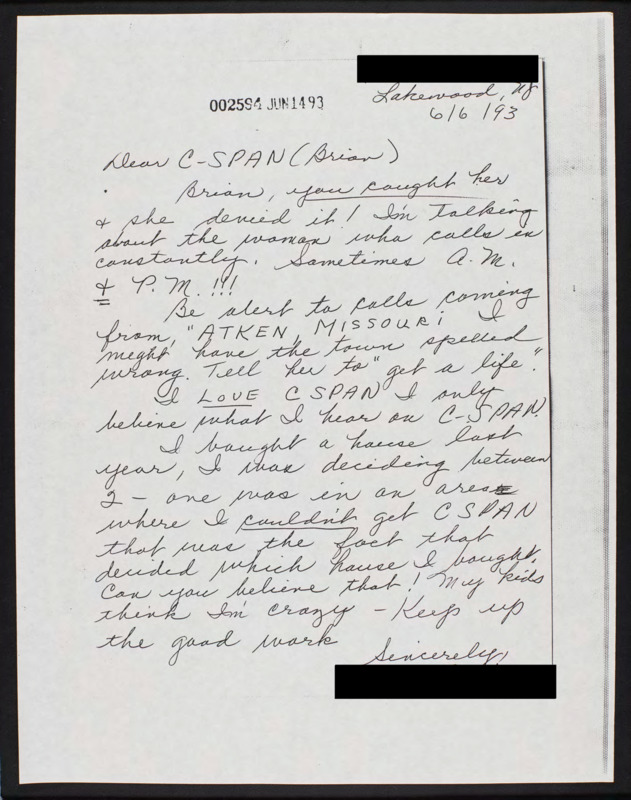 Lakewood, NJ
002594 JUN1493
6/6/93
Dear C-SPAN (Brian)
Brian, you caught her
& she denied it! I'm talking
about the woman who calls in
constantly. Sometimes A.M.
& P.M.!!!
Be alert to calls coming
from, "ATKEN, MISSOURI I
might have the town spelled
wrong. Tell her to "get a life".
I LOVE CSPAN I only
believe what I hear on C-SPAN.
I bought a house last
year, I was deciding between
2 – one was in an area
where I couldn't get CSPAN
that was the fact that
decided which house I bought.
Can you believe that! My kids
think I'm crazy – Keep up
the good work
Sincerely,